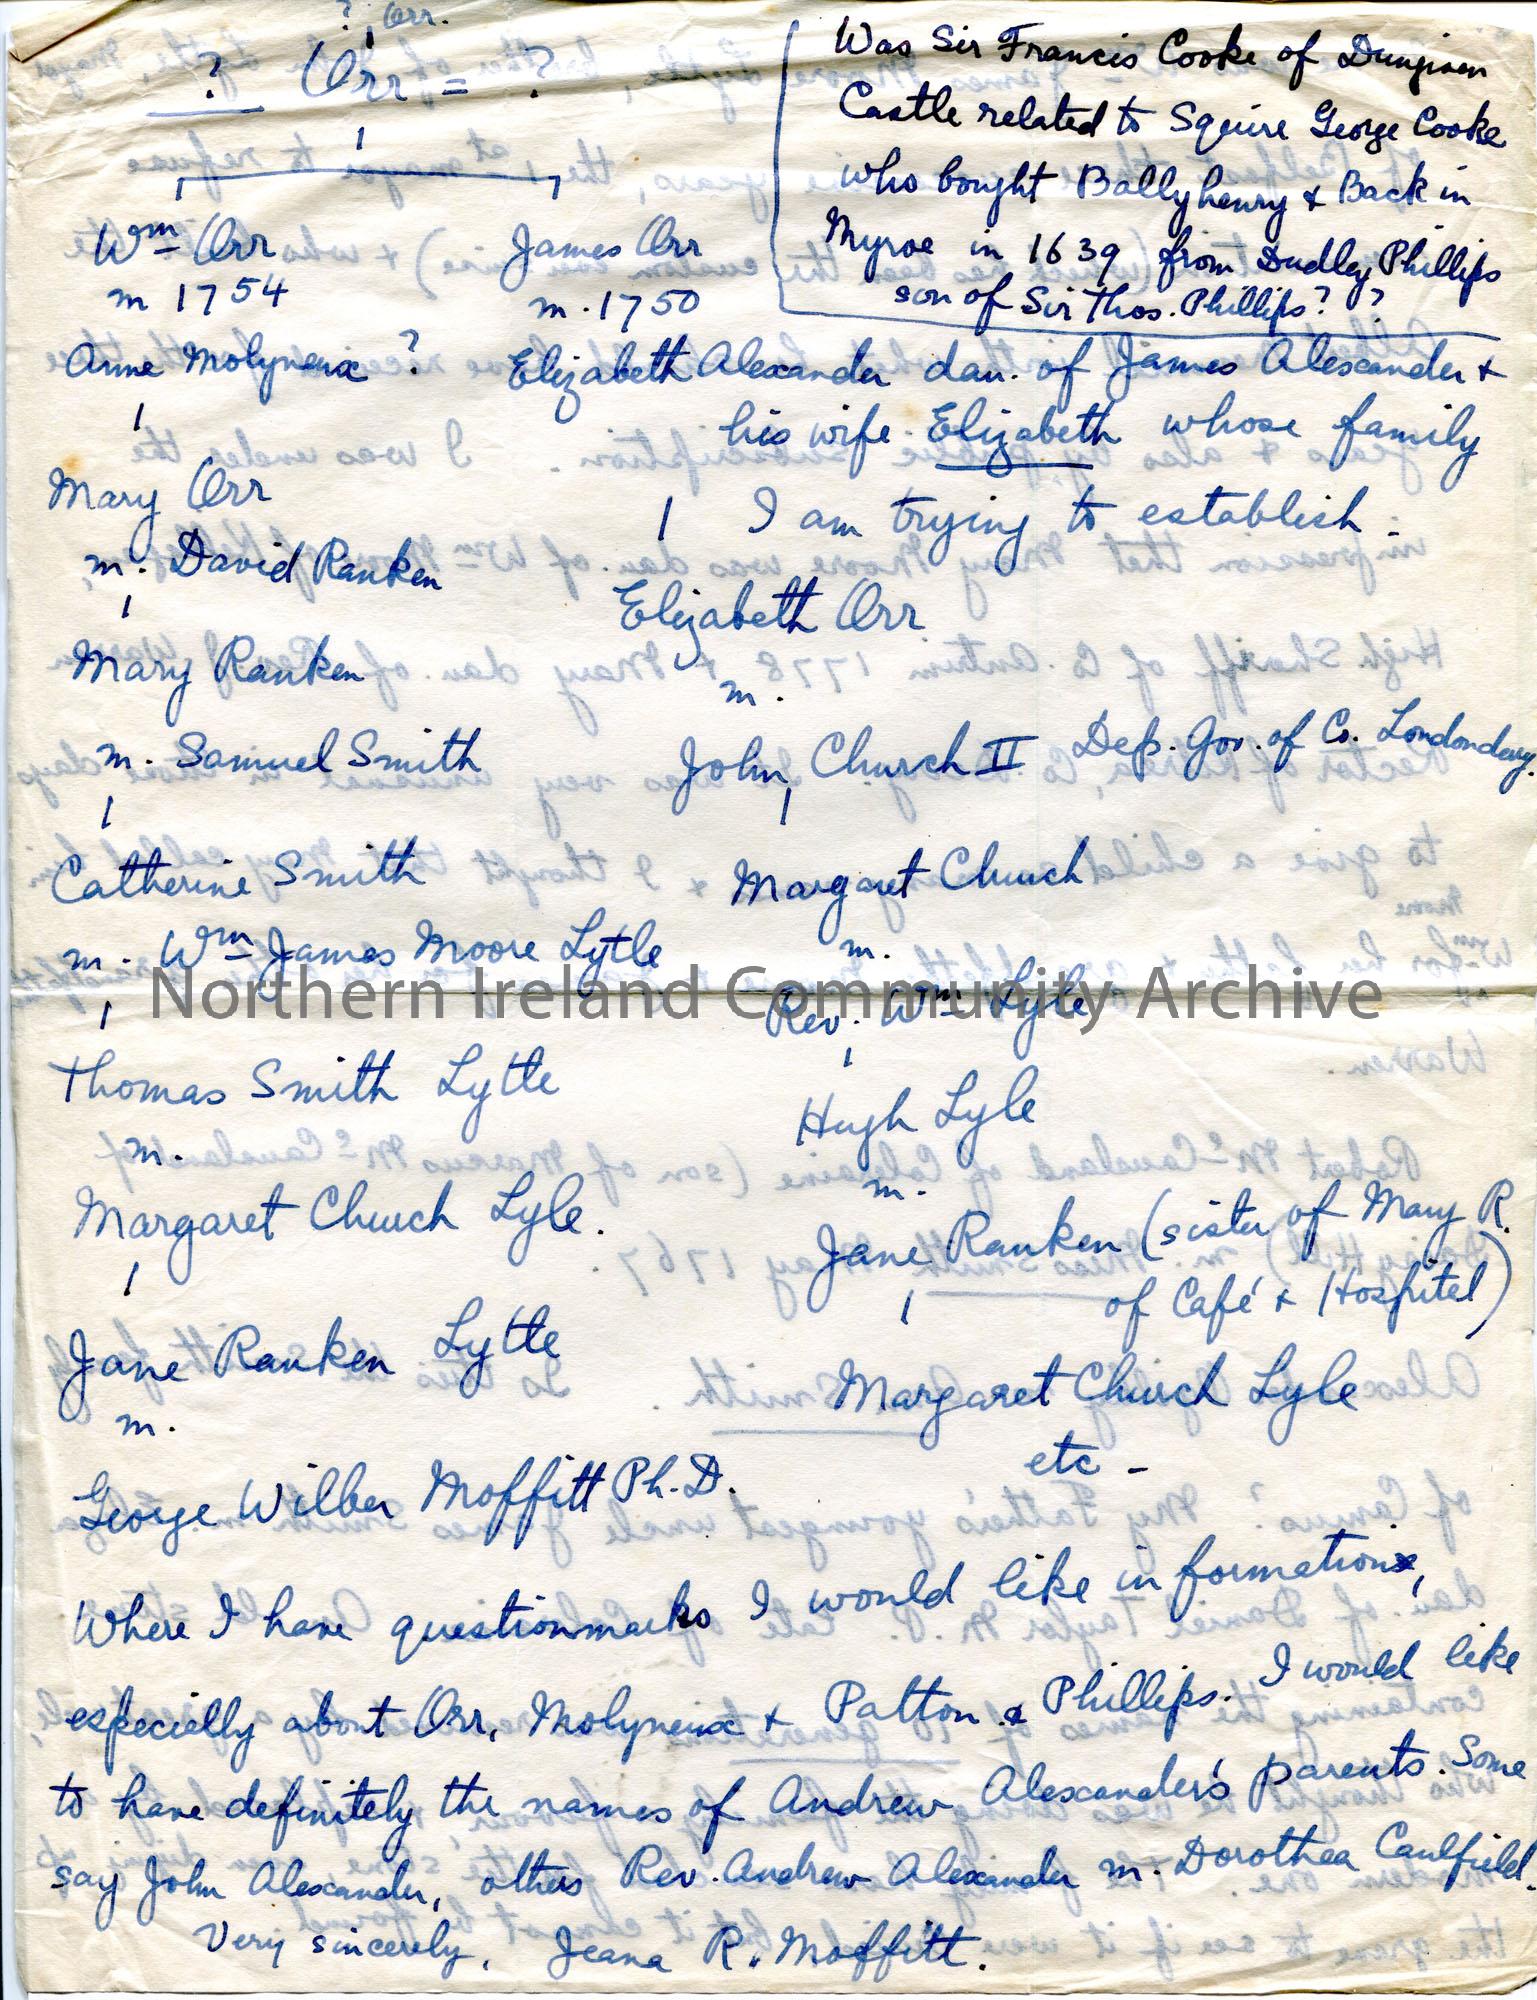 ? Orr.
? Orr = ?
Was Sir Francis Cooke of Dungiven
Castle related to Squire George Cooke
who bought Ballyhenry & Back in
Myroe in 1639 from Dudley Phillips
son of Sir Thos. Phillips? ?
Wm Orr
m 1754
Anne Molyneux ?
James Orr
m. 1750
Elizabeth Alexander dau. of James Alexander &
his wife Elizabeth whose family
I am trying to establish.
Mary Orr
m. David Ranken
Elizabeth Orr
m.
Mary Ranken
m. Samuel Smith
John Church II Dep. Gov. of Co. Londonderry.
Catherine Smith
m. Wm James Moore Lytle
Margaret Church
m.
Rev. Wm Lyle
Northern Ireland Community Archive
Thomas Smith Lytle
m.
Margaret Church Lyle.
Hugh Lyle
m.
Jane Ranken (sister of Mary R.
of Café & Hospital)
Jane Ranken Lytle
m.
George Wilber Moffitt Ph.D.
Margaret Church Lyle
etc -
Where I have questionmarks I would like information,
especially about Orr, Molyneux & Patton & Phillips. I would like
to have definitely the names of Andrew Alexander's parents. Some
say John Alexander, others Rev. Andrew Alexander m. Dorothea Caulfield.
Very sincerely, Jeana R. Moffitt.